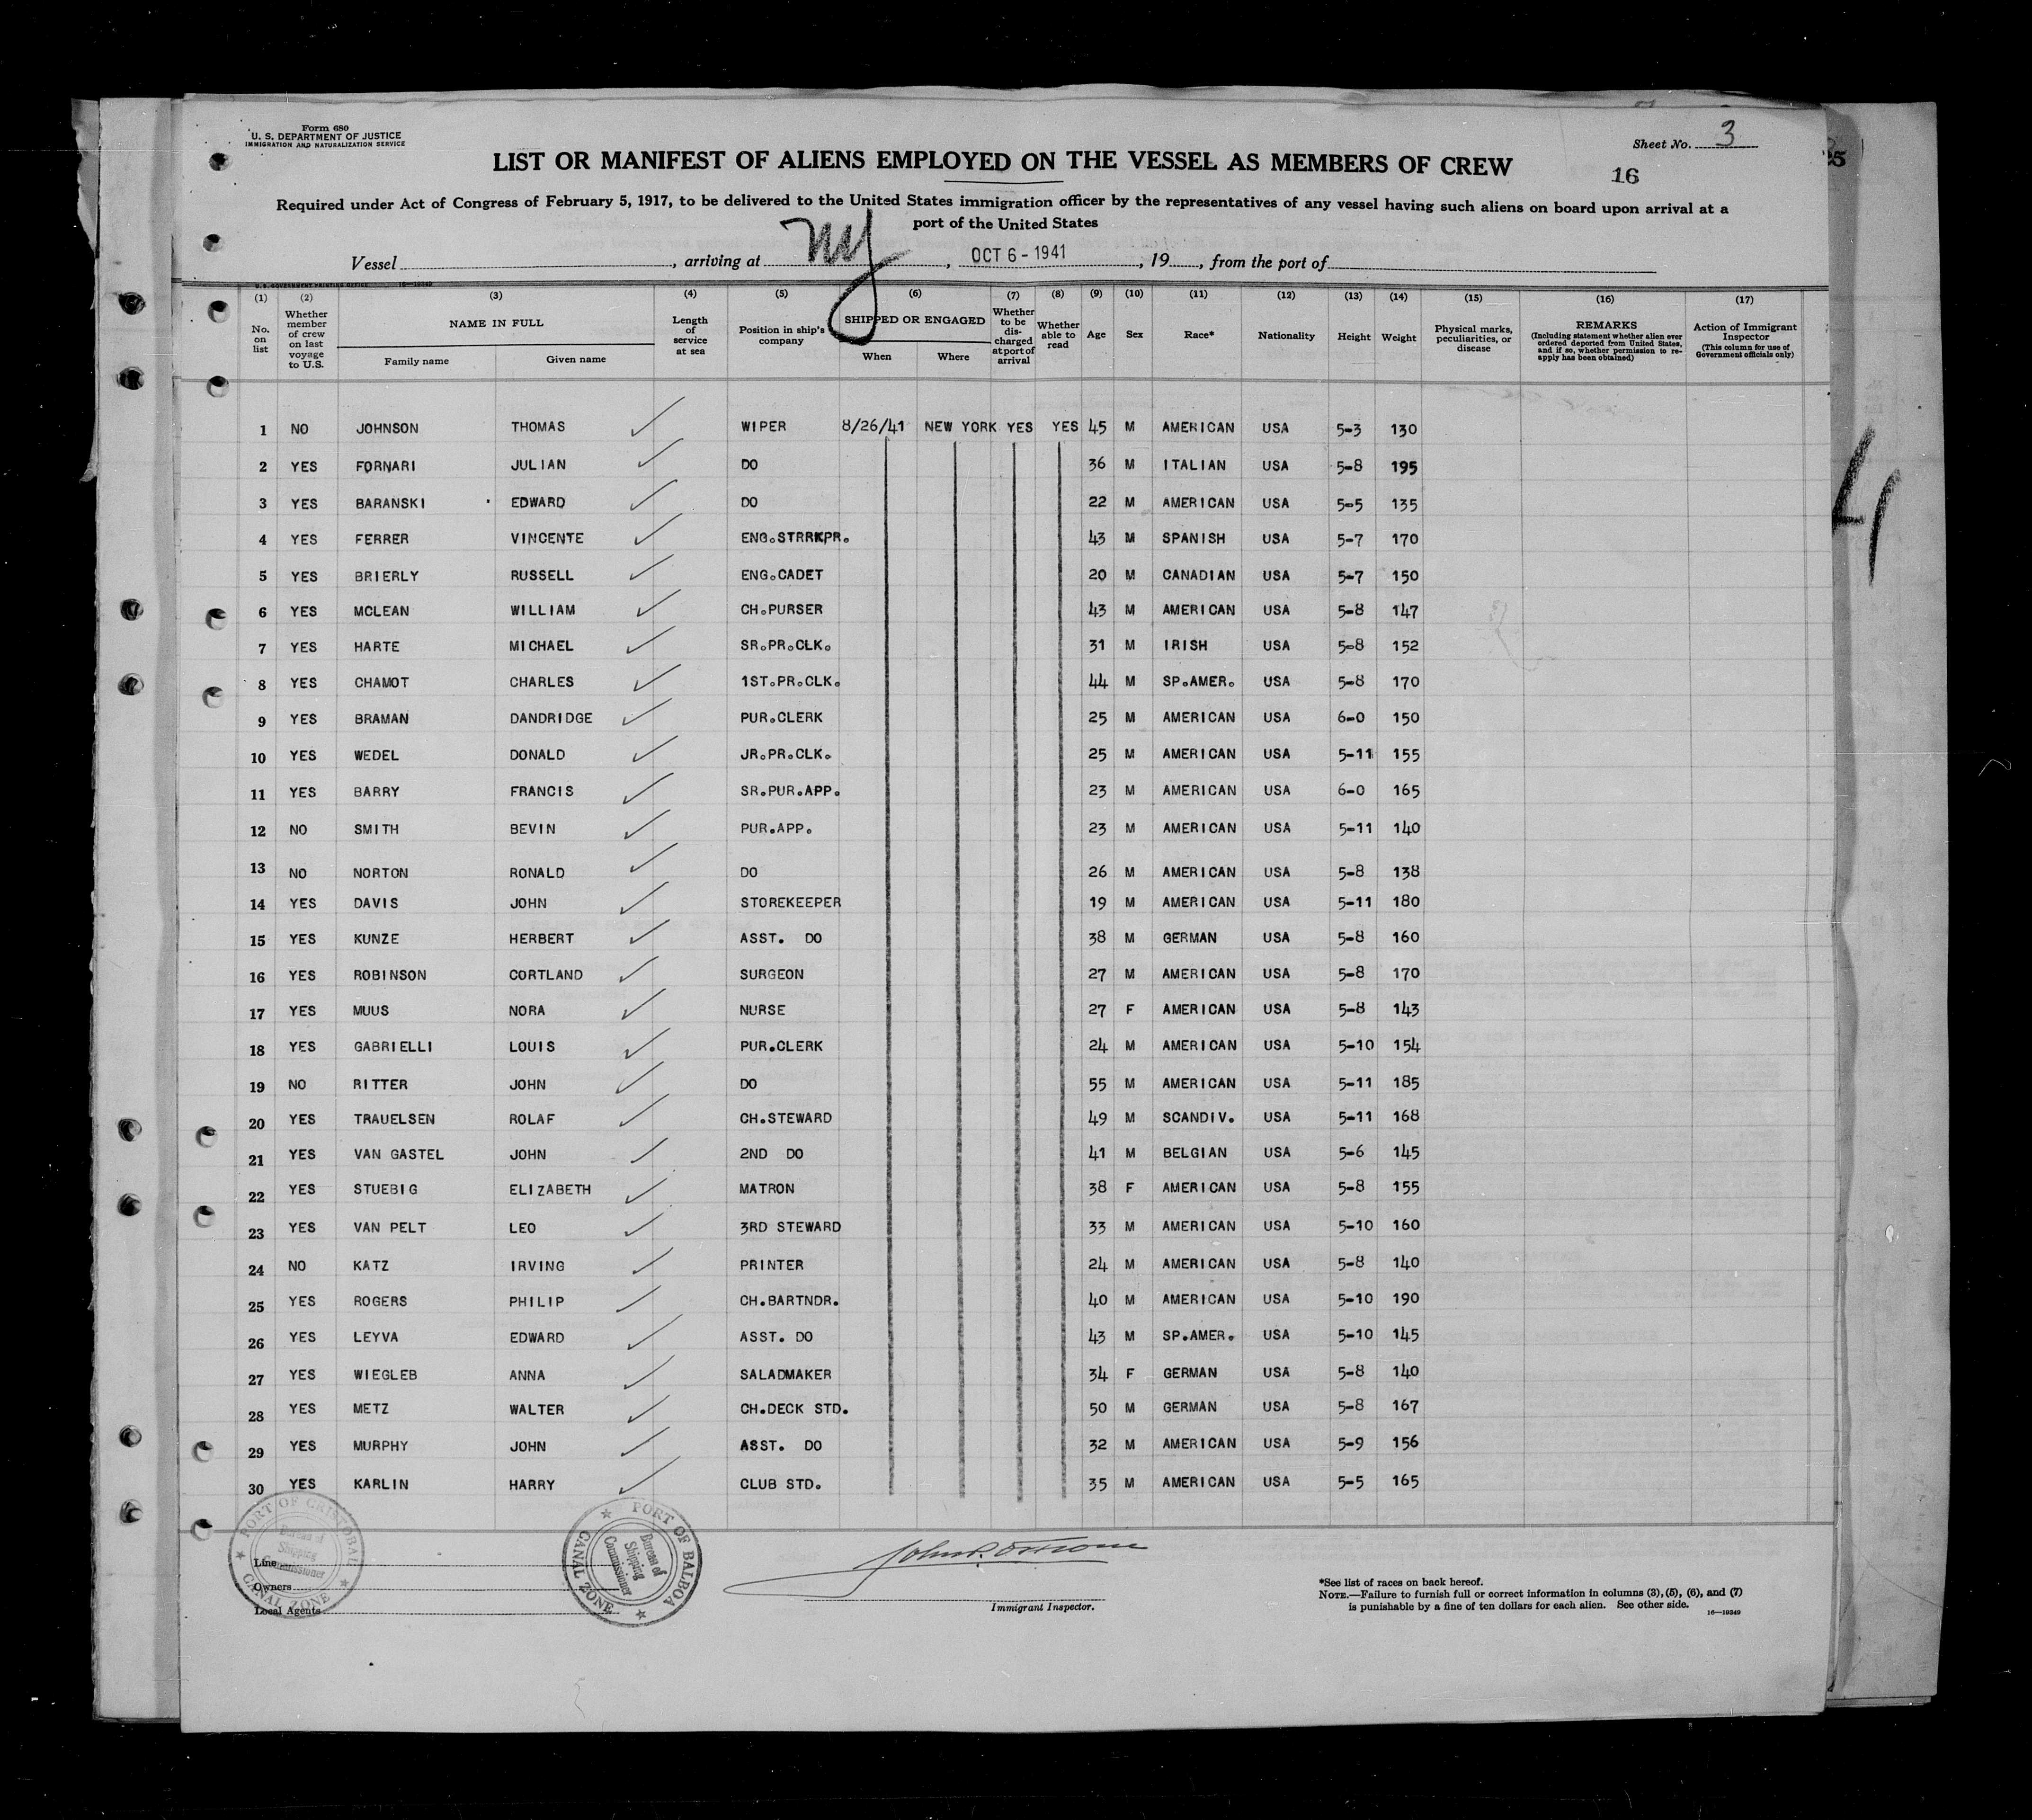 Form 680
U. S. DEPARTMENT OF JUSTICE
IMMIGRATION AND NATURALIZATION SERVICE
Sheet No. 3
LIST OR MANIFEST OF ALIENS EMPLOYED ON THE VESSEL AS MEMBERS OF CREW
16
Required under Act of Congress of February 5, 1917, to be delivered to the United States immigration officer by the representatives of any vessel having such aliens on board upon arrival at a
port of the United States
Vessel , arriving at NY , OCT 6 - 1941 , 19 , from the port of
U. S. GOVERNMENT PRINTING OFFICE 16—19349
(1) (2) (3) (4) (5) (6) (7) (8) (9) (10) (11) (12) (13) (14) (15) (16) (17)
No. on list
Whether member of crew on last voyage to U.S.
NAME IN FULL
Family name Given name
Length of service at sea
Position in ship's company
SHIPPED OR ENGAGED
When Where
Whether to be discharged at port of arrival
Whether able to read
Age Sex Race* Nationality Height Weight
Physical marks, peculiarities, or disease
REMARKS
(Including statement whether alien ever ordered deported from United States, and if so, whether permission to reapply has been obtained)
Action of Immigrant Inspector
(This column for use of Government officials only)
1 NO JOHNSON THOMAS WIPER 8/26/41 NEW YORK YES YES 45 M AMERICAN USA 5-3 130
2 YES FORNARI JULIAN DO 36 M ITALIAN USA 5-8 195
3 YES BARANSKI EDWARD DO 22 M AMERICAN USA 5-5 135
4 YES FERRER VINCENTE ENG.STRRKPR. 43 M SPANISH USA 5-7 170
5 YES BRIERLY RUSSELL ENG.CADET 20 M CANADIAN USA 5-7 150
6 YES MCLEAN WILLIAM CH.PURSER 43 M AMERICAN USA 5-8 147
7 YES HARTE MICHAEL SR.PR.CLK. 31 M IRISH USA 5-8 152
8 YES CHAMOT CHARLES 1ST.PR.CLK. 44 M SP.AMER. USA 5-8 170
9 YES BRAMAN DANDRIDGE PUR.CLERK 25 M AMERICAN USA 6-0 150
10 YES WEDEL DONALD JR.PR.CLK. 25 M AMERICAN USA 5-11 155
11 YES BARRY FRANCIS SR.PUR.APP. 23 M AMERICAN USA 6-0 165
12 NO SMITH BEVIN PUR.APP. 23 M AMERICAN USA 5-11 140
13 NO NORTON RONALD DO 26 M AMERICAN USA 5-8 138
14 YES DAVIS JOHN STOREKEEPER 19 M AMERICAN USA 5-11 180
15 YES KUNZE HERBERT ASST. DO 38 M GERMAN USA 5-8 160
16 YES ROBINSON CORTLAND SURGEON 27 M AMERICAN USA 5-8 170
17 YES MUUS NORA NURSE 27 F AMERICAN USA 5-8 143
18 YES GABRIELLI LOUIS PUR.CLERK 24 M AMERICAN USA 5-10 154
19 NO RITTER JOHN DO 55 M AMERICAN USA 5-11 185
20 YES TRAUELSEN ROLAF CH.STEWARD 49 M SCANDIV. USA 5-11 168
21 YES VAN GASTEL JOHN 2ND DO 41 M BELGIAN USA 5-6 145
22 YES STUEBIG ELIZABETH MATRON 38 F AMERICAN USA 5-8 155
23 YES VAN PELT LEO 3RD STEWARD 33 M AMERICAN USA 5-10 160
24 NO KATZ IRVING PRINTER 24 M AMERICAN USA 5-8 140
25 YES ROGERS PHILIP CH.BARTNDR. 40 M AMERICAN USA 5-10 190
26 YES LEYVA EDWARD ASST. DO 43 M SP.AMER. USA 5-10 145
27 YES WIEGLEB ANNA SALADMAKER 34 F GERMAN USA 5-8 140
28 YES METZ WALTER CH.DECK STD. 50 M GERMAN USA 5-8 167
29 YES MURPHY JOHN ASST. DO 32 M AMERICAN USA 5-9 156
30 YES KARLIN HARRY CLUB STD. 35 M AMERICAN USA 5-5 165
PORT OF CRISTOBAL CANAL ZONE Bureau of Shipping Commissioner
PORT OF BALBOA CANAL ZONE Bureau of Shipping Commissioner
Line
Owners
Local Agents
Immigrant Inspector.
*See list of races on back hereof.
NOTE.—Failure to furnish full or correct information in columns (3), (5), (6), and (7)
is punishable by a fine of ten dollars for each alien. See other side.
16—19349
4